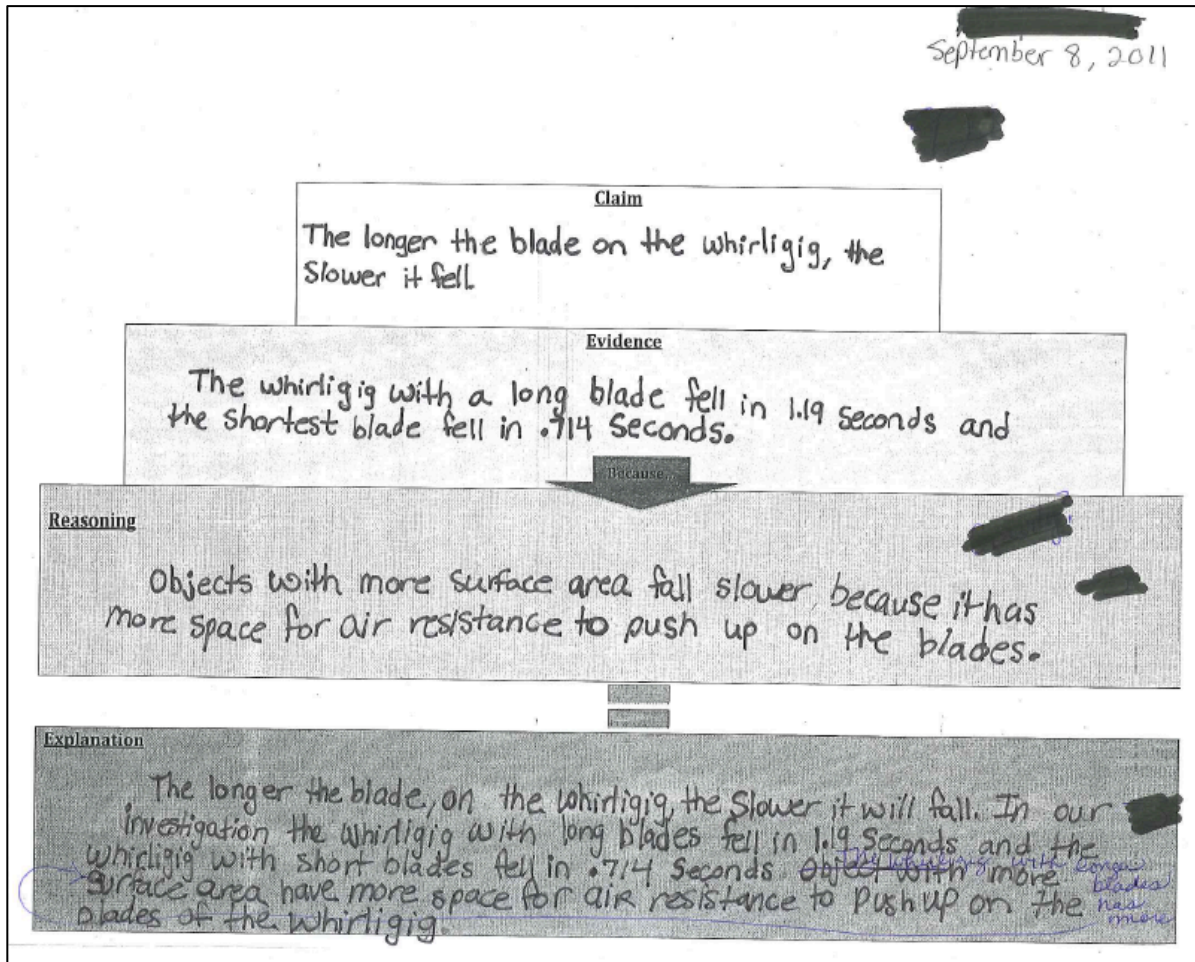 September 8, 2011
Claim
The longer the blade on the whirligig, the
Slower it fell
Evidence
The whirligig with a long blade fell in 1.19 seconds and
the shortest blade fell in .714 Seconds.
Because..
Reasoning
Objects with more surface area fall slower because it has
more space for air resistance to push up on the blades.
Explanation
The longer the blade, on the whirligig, the slower it will fall. In our
investigation the whirligig with long blades fell in 1.19 Seconds and the
whirligig with short blades fell in .714 Seconds. Object with more
The whirligig with longer
blades
has
more
Surface area have more space for air resistance to Push up on the
blades of the whirligig.